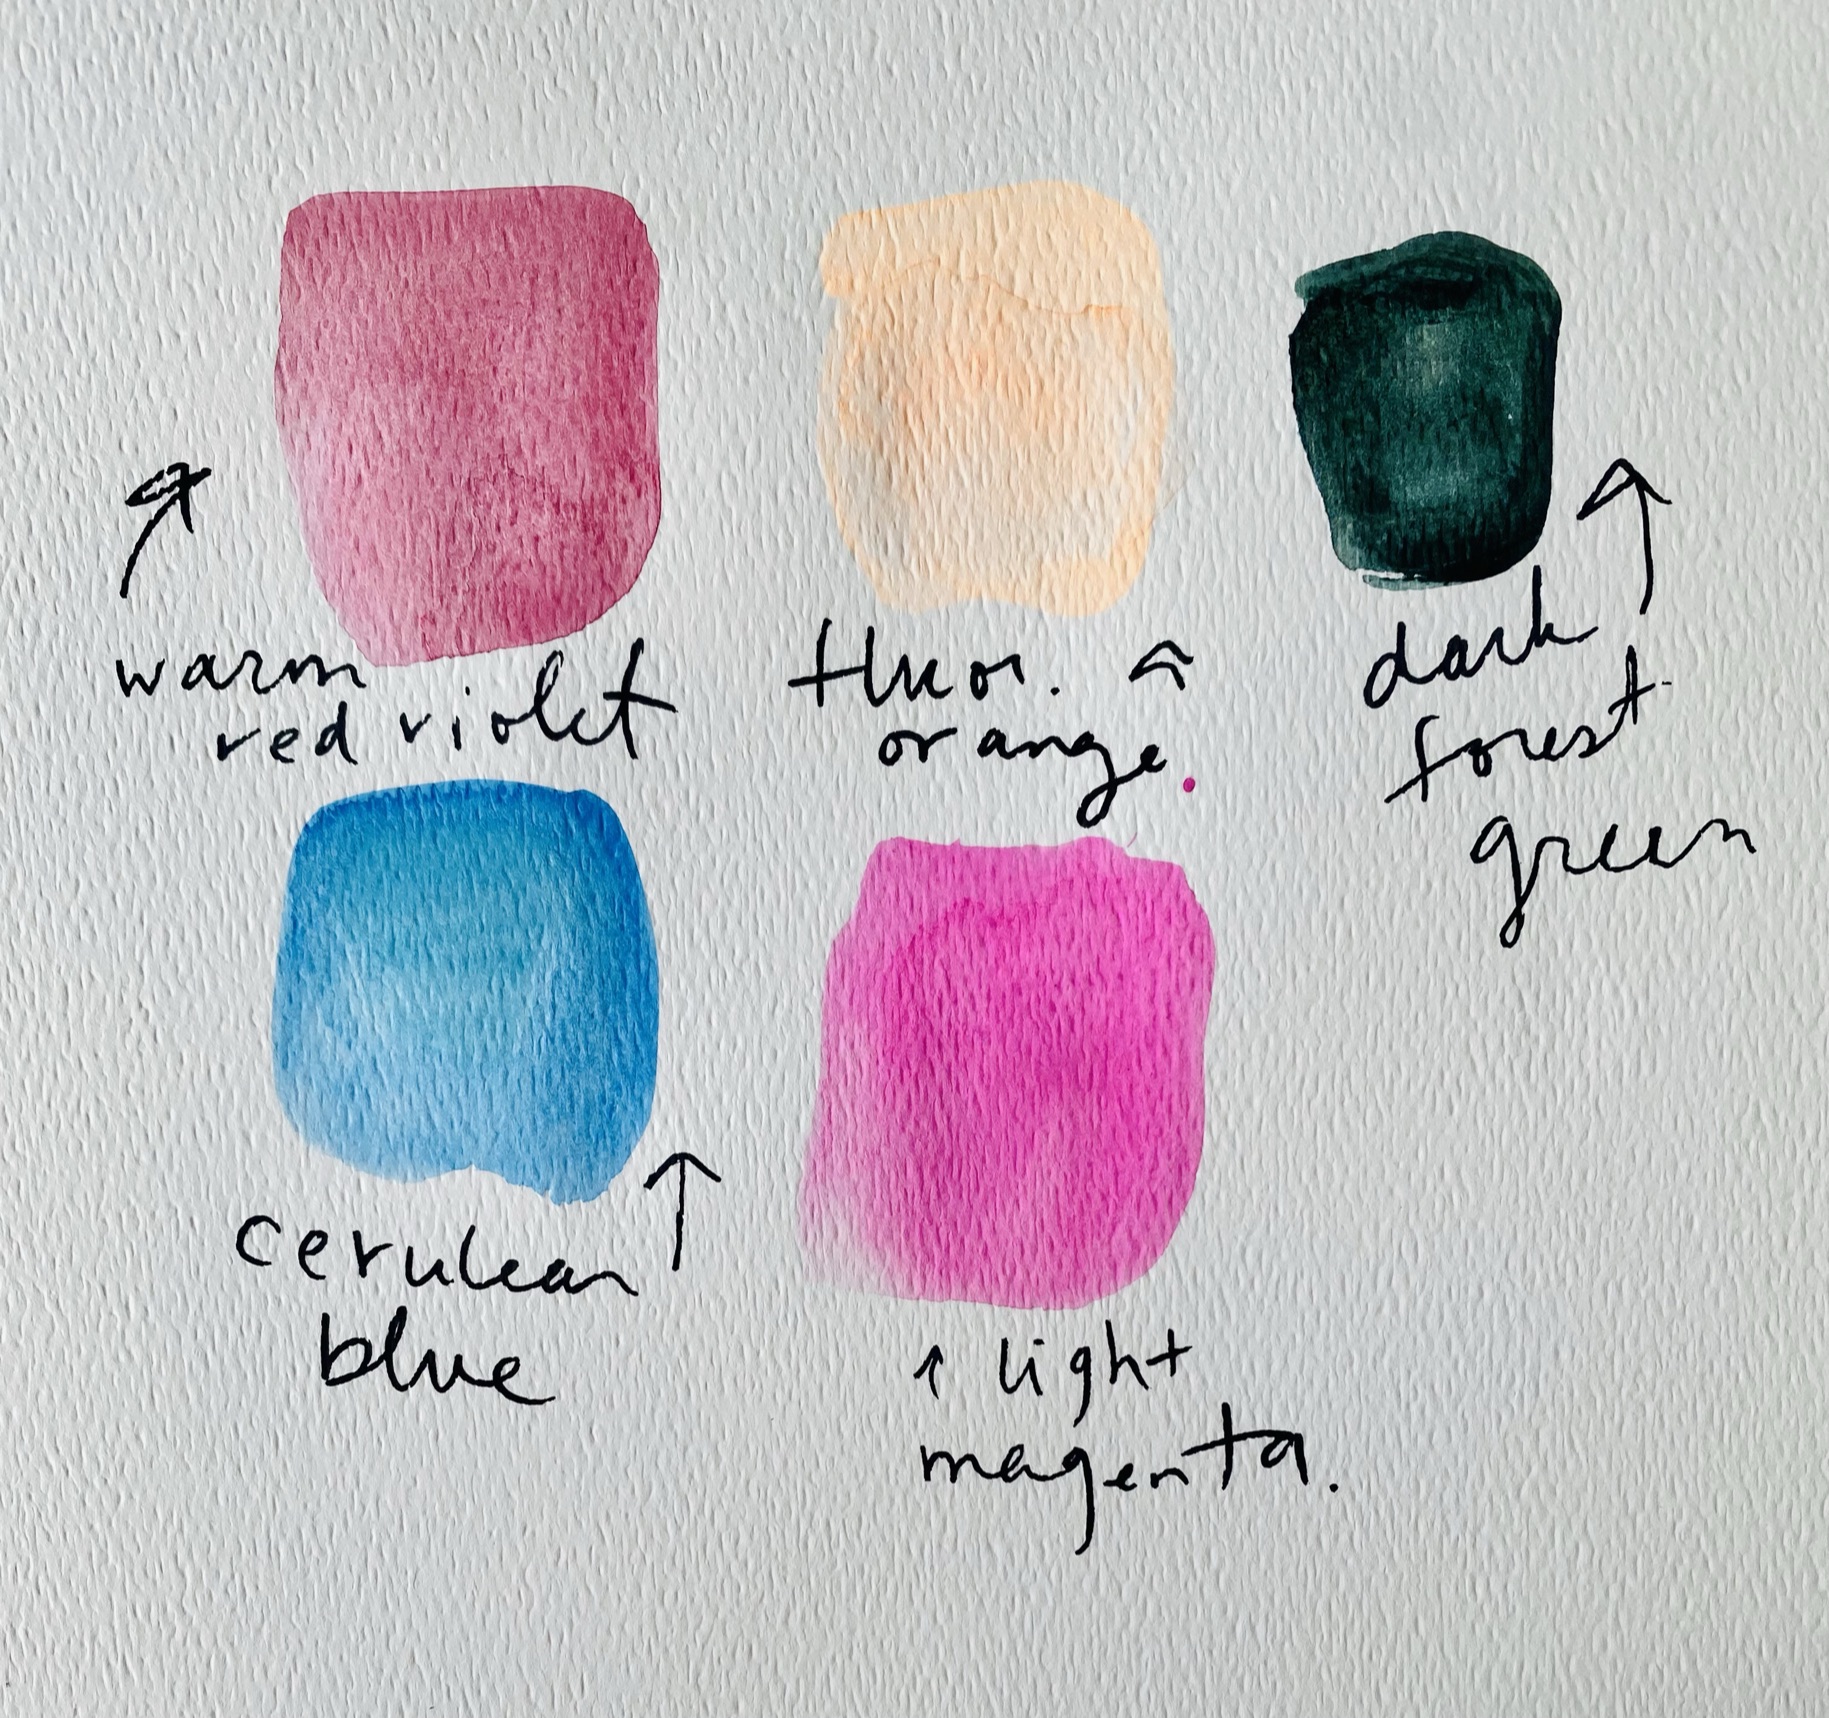 warm
red violet
fluor.
orange.
dark
forest
green
cerulean
blue
light
magenta.